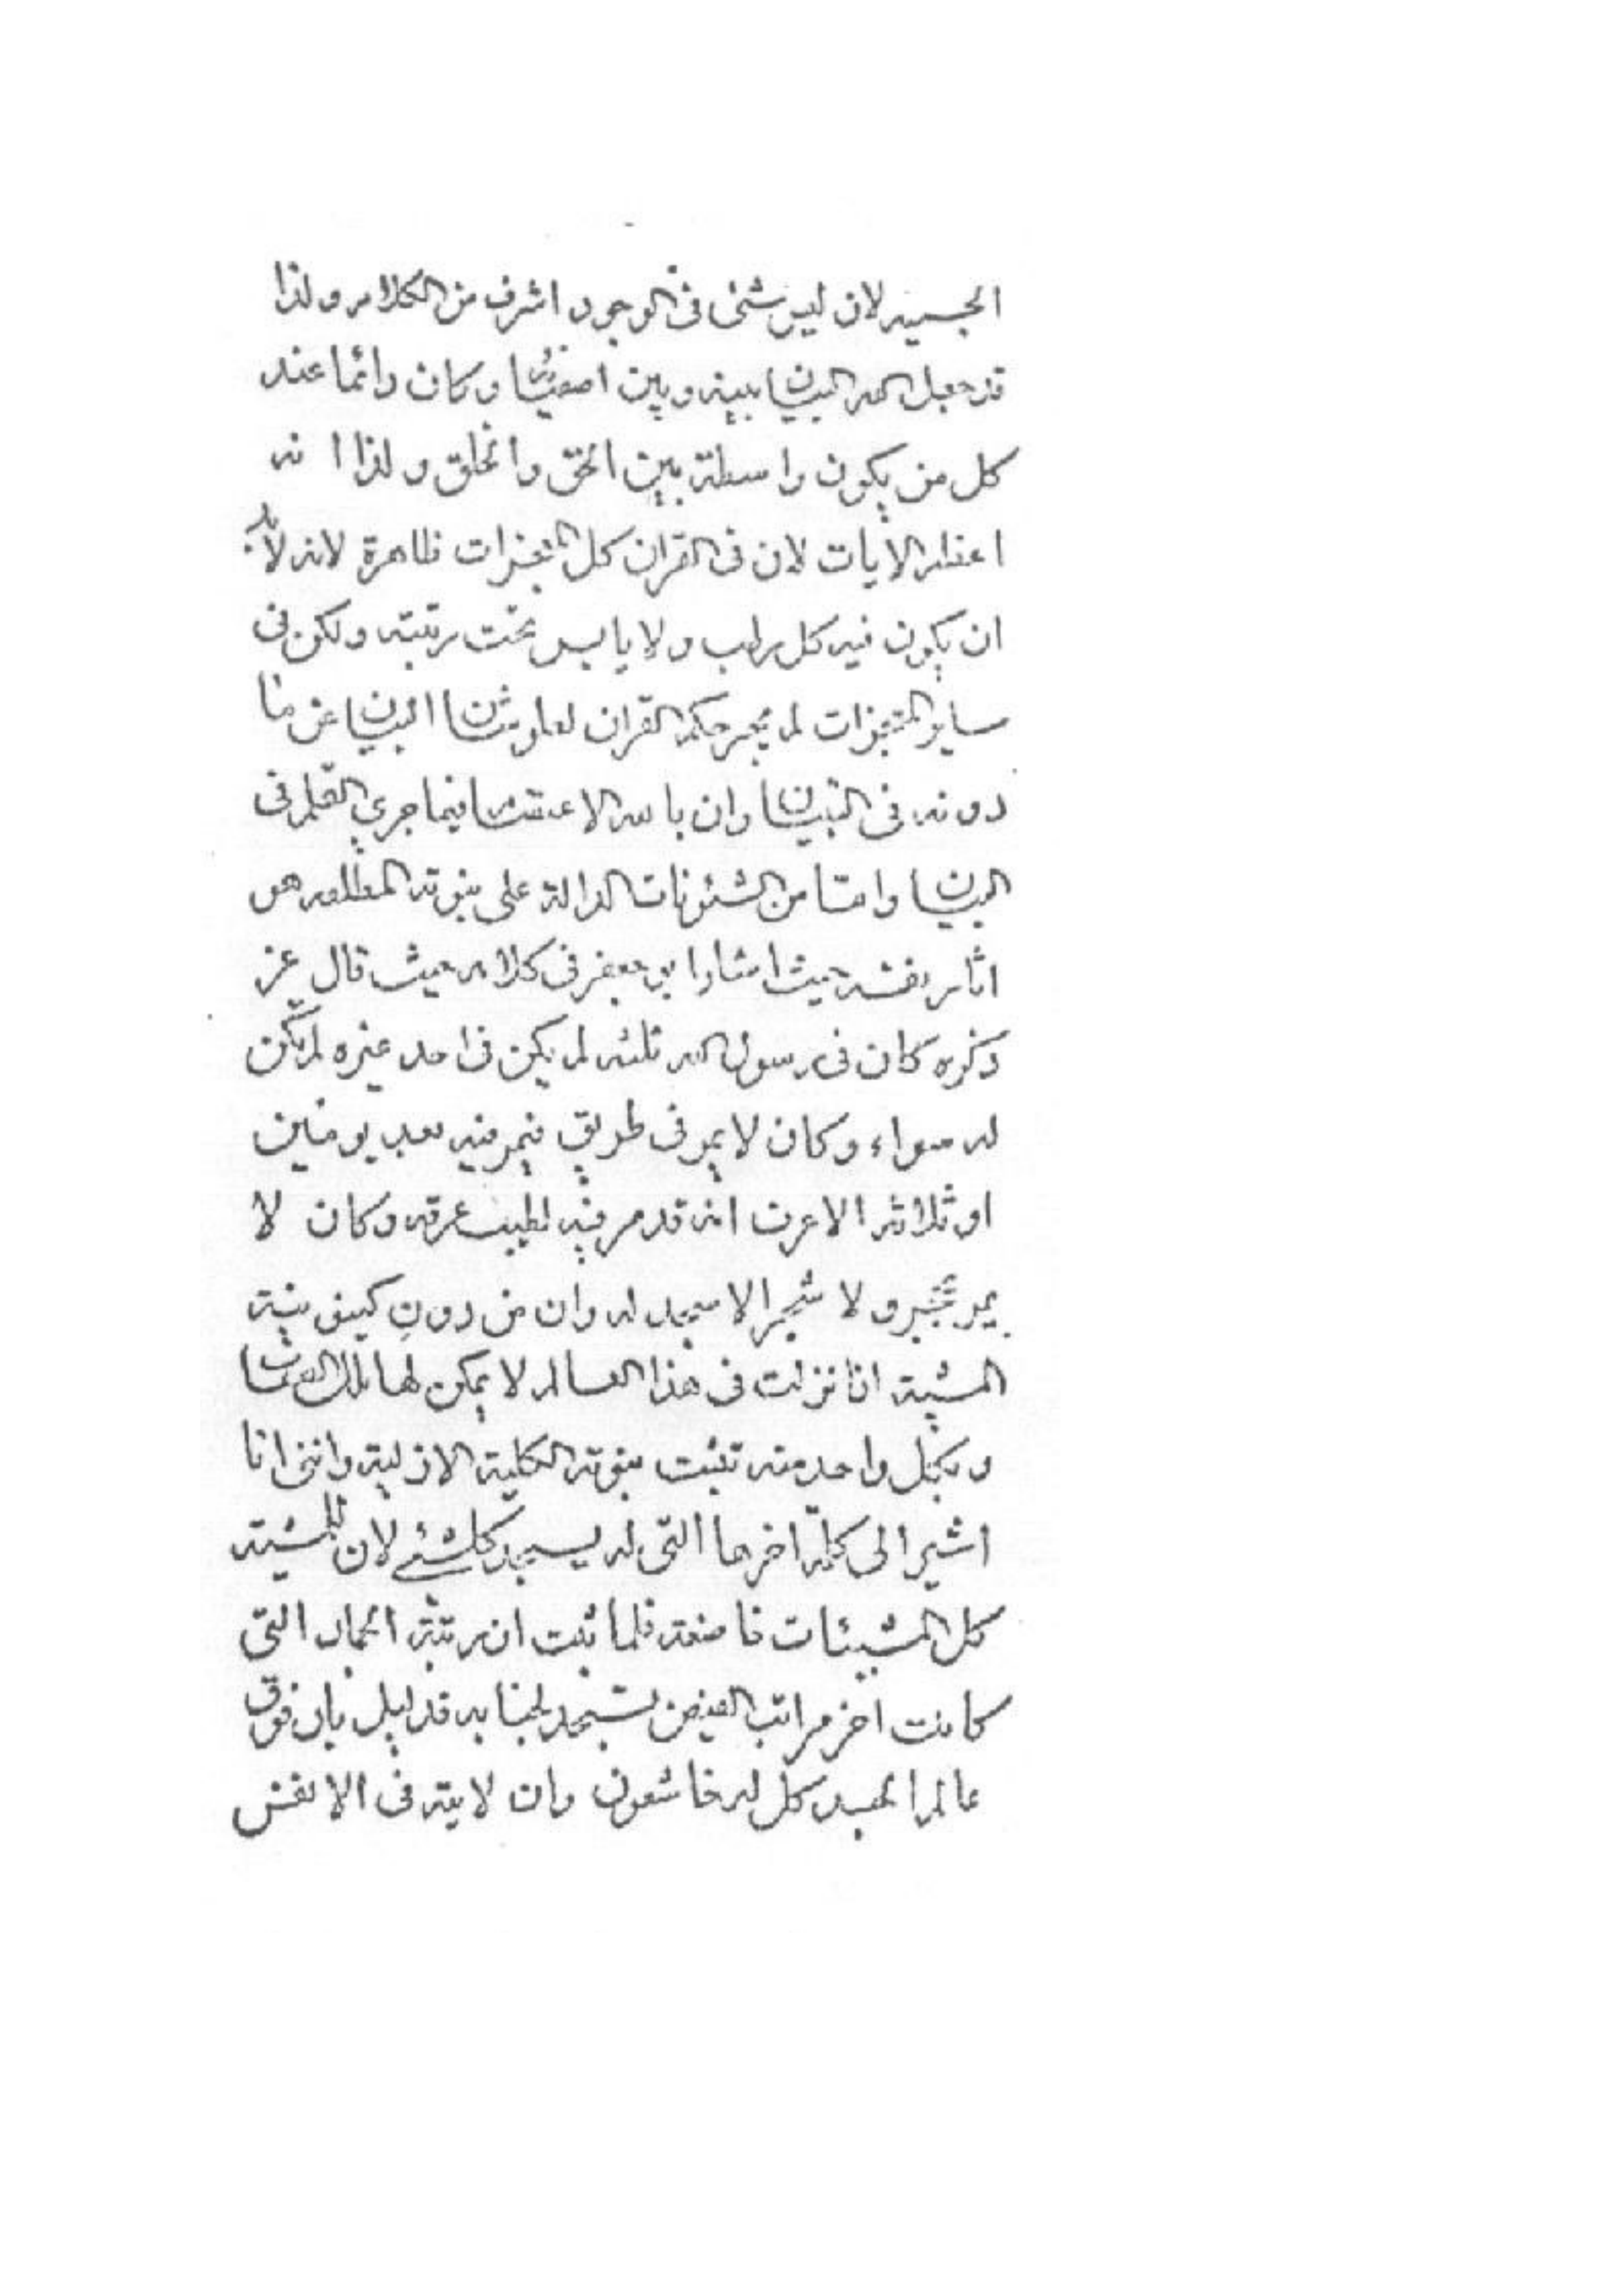 الجسميه لان ليس شئ فى الوجود اشرف من الكلام ولذا
قد جعل الله البيان بينه وبين اصفيائه وكان دائما عند
كل من يكون واسطة بين الحق والخلق ولذا انه
اعظم الايات لان فى القران كل المعجزات ظاهرة لانه لابد
ان يكون فيه كل رطب ولا يابس تحت رتبته ولكن فى
ساير المعجزات لم يجر حكم القران لعلو شان البيان عن ما
دونه فى التبيان وان بالله الاعتصام فيما جرى القلم فى
البيان واما من الشئونات الدالة على نبوته المطلقه هو
اثار نفسه حيث اشار ابى جعفر فى كلامه حيث قال عز
ذكره كان فى رسول الله ثلثه لم يكن فى احد غيره لم يكن
له سواء وكان لا يمر فى طريق فيمر فيه بعد يومين
او ثلاثه الا عرف انه قد مر فيه لطيب عرقه وكان لا
يمر بحجر ولا شجر الا سجد له وان من دون كينونية
المشية اذا نزلت فى هذا العالم لا يمكن لها تلك الصفات
وبكل واحد منه تثبت نبوته الكلية الازلية واننى انا
اشير الى كلمة اخرها التى له يسجد كلشئ لان للمشية
كل المشيئات خاضعة فلما ثبت ان رتبة الجماد التى
كانت اخر مراتب الفيض تسجد لجنابه قد ليل بان فوق
عالم الجسد كل له خاشعون وان لايته فى الانفس